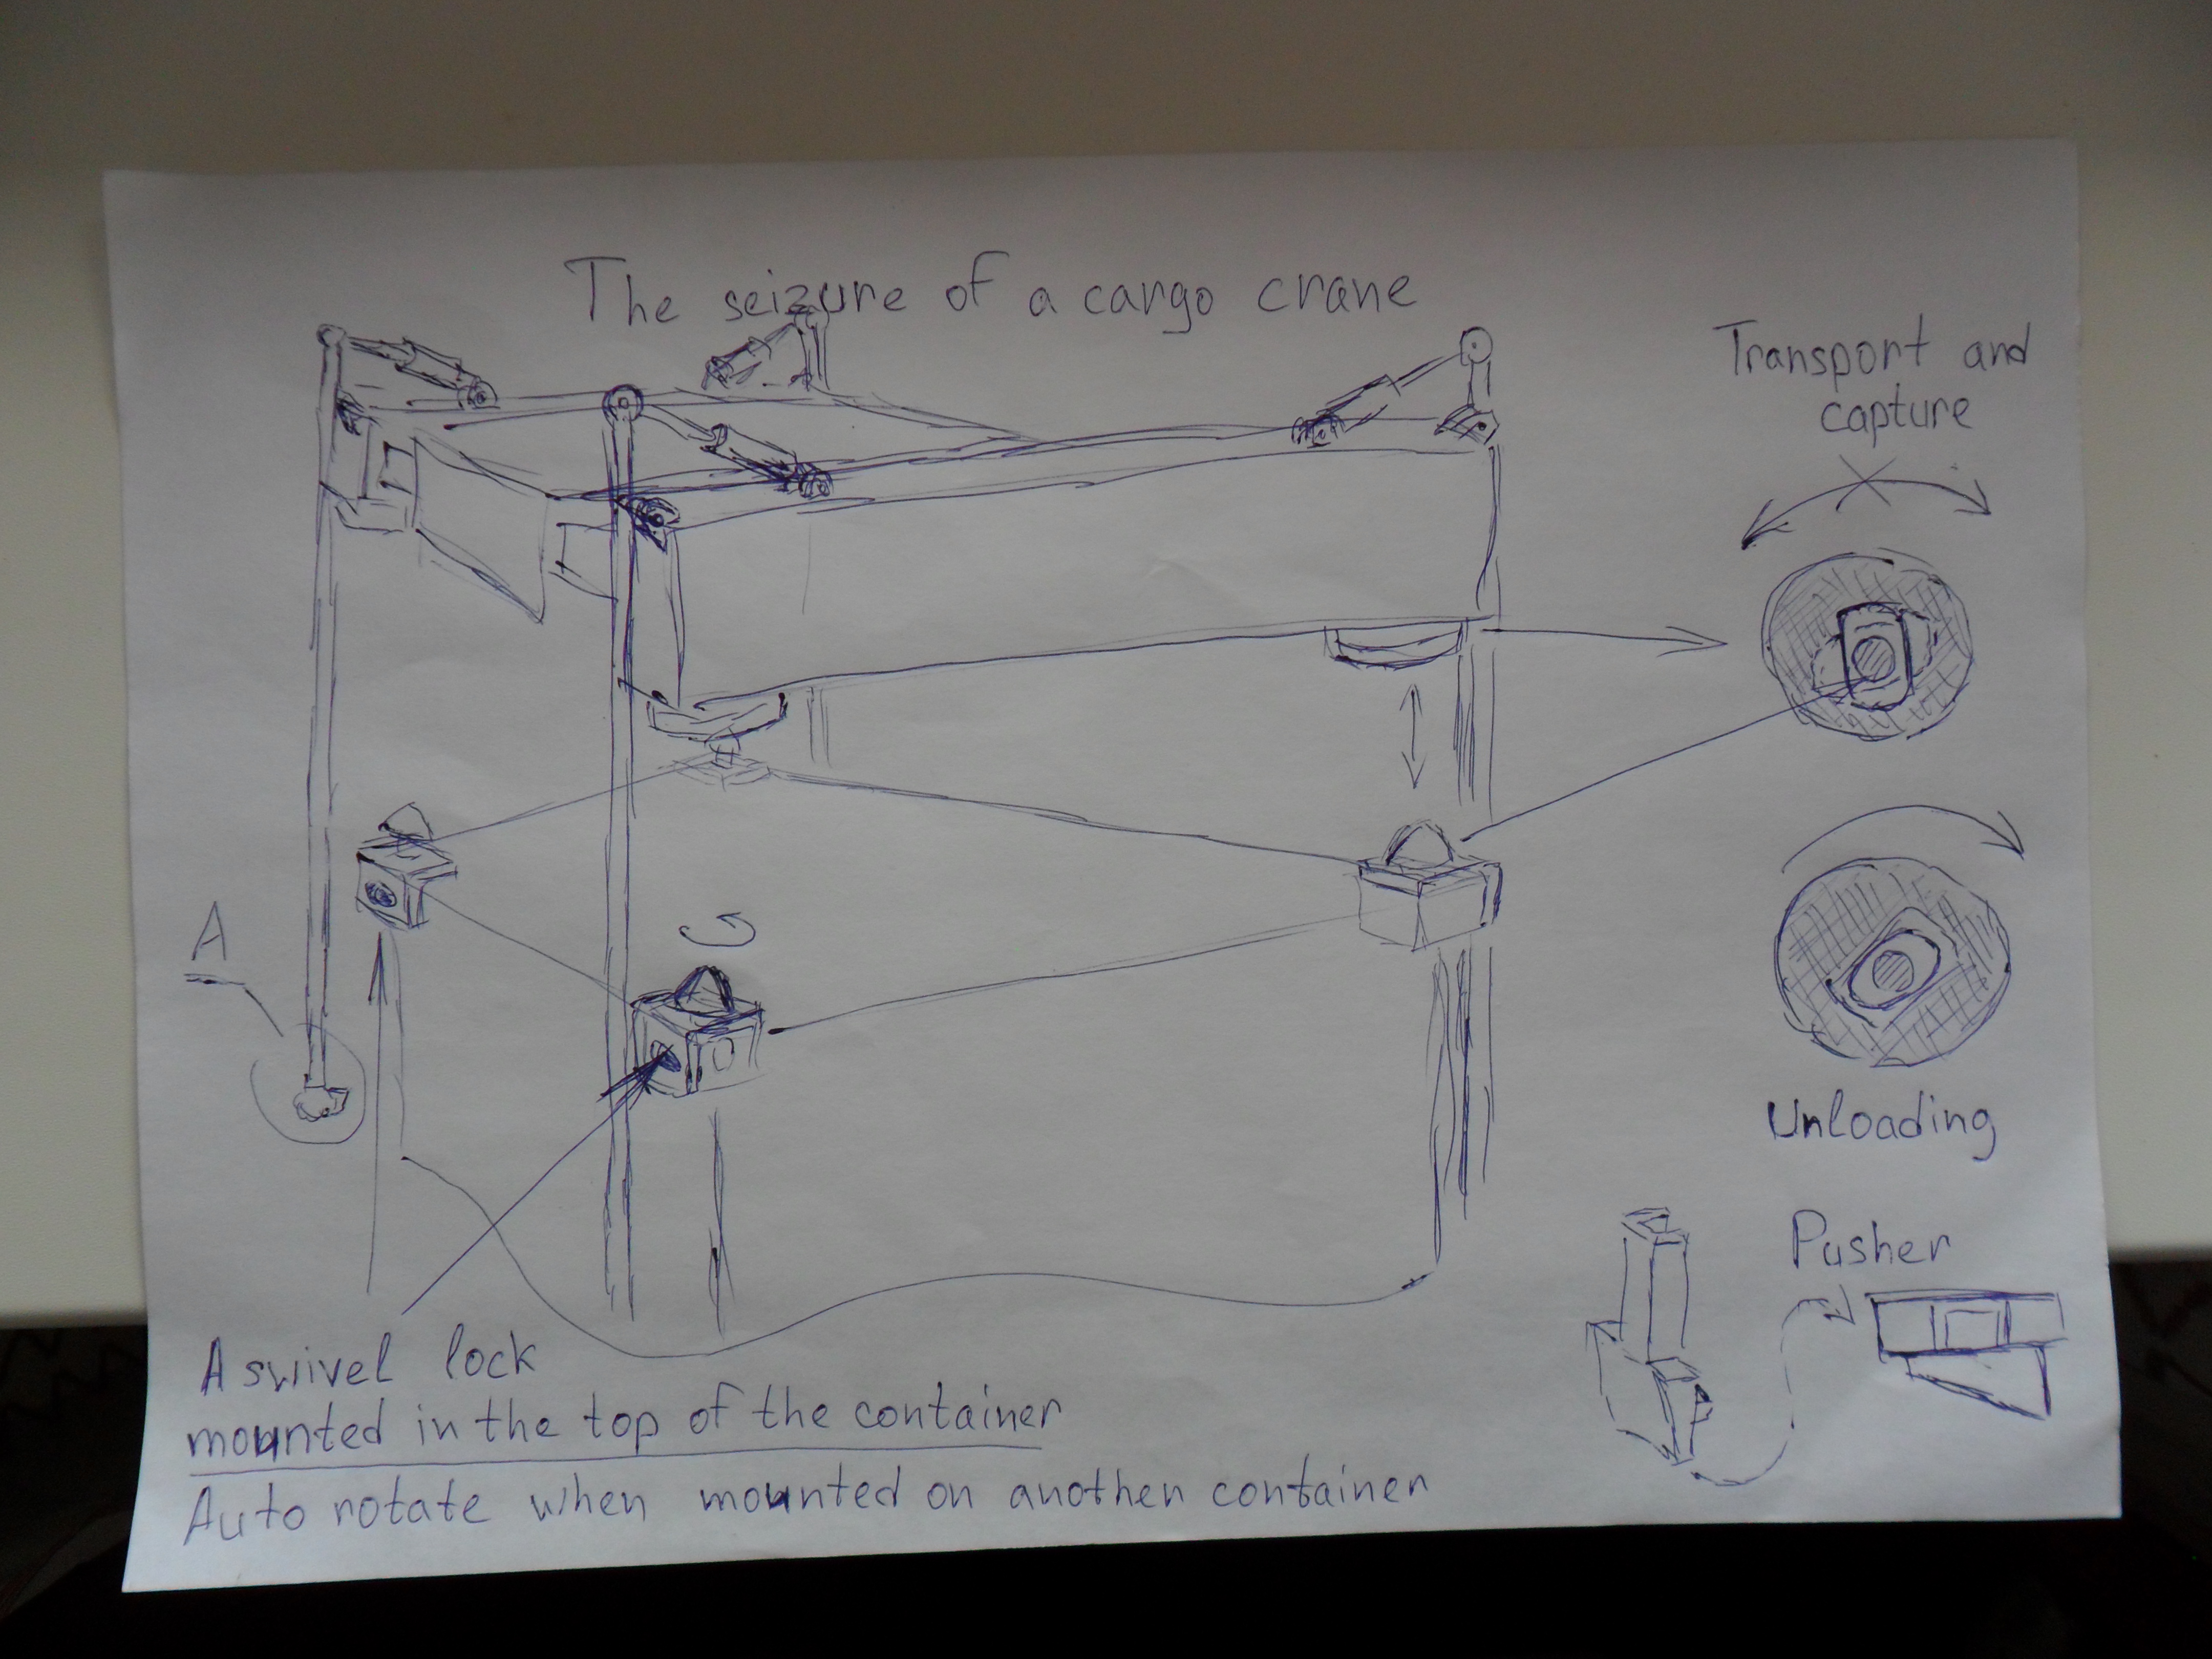 The seizure of a cargo crane
Transport and
capture
A
Unloading
Pusher
A swivel lock
mounted in the top of the container
Auto rotate when mounted on another container